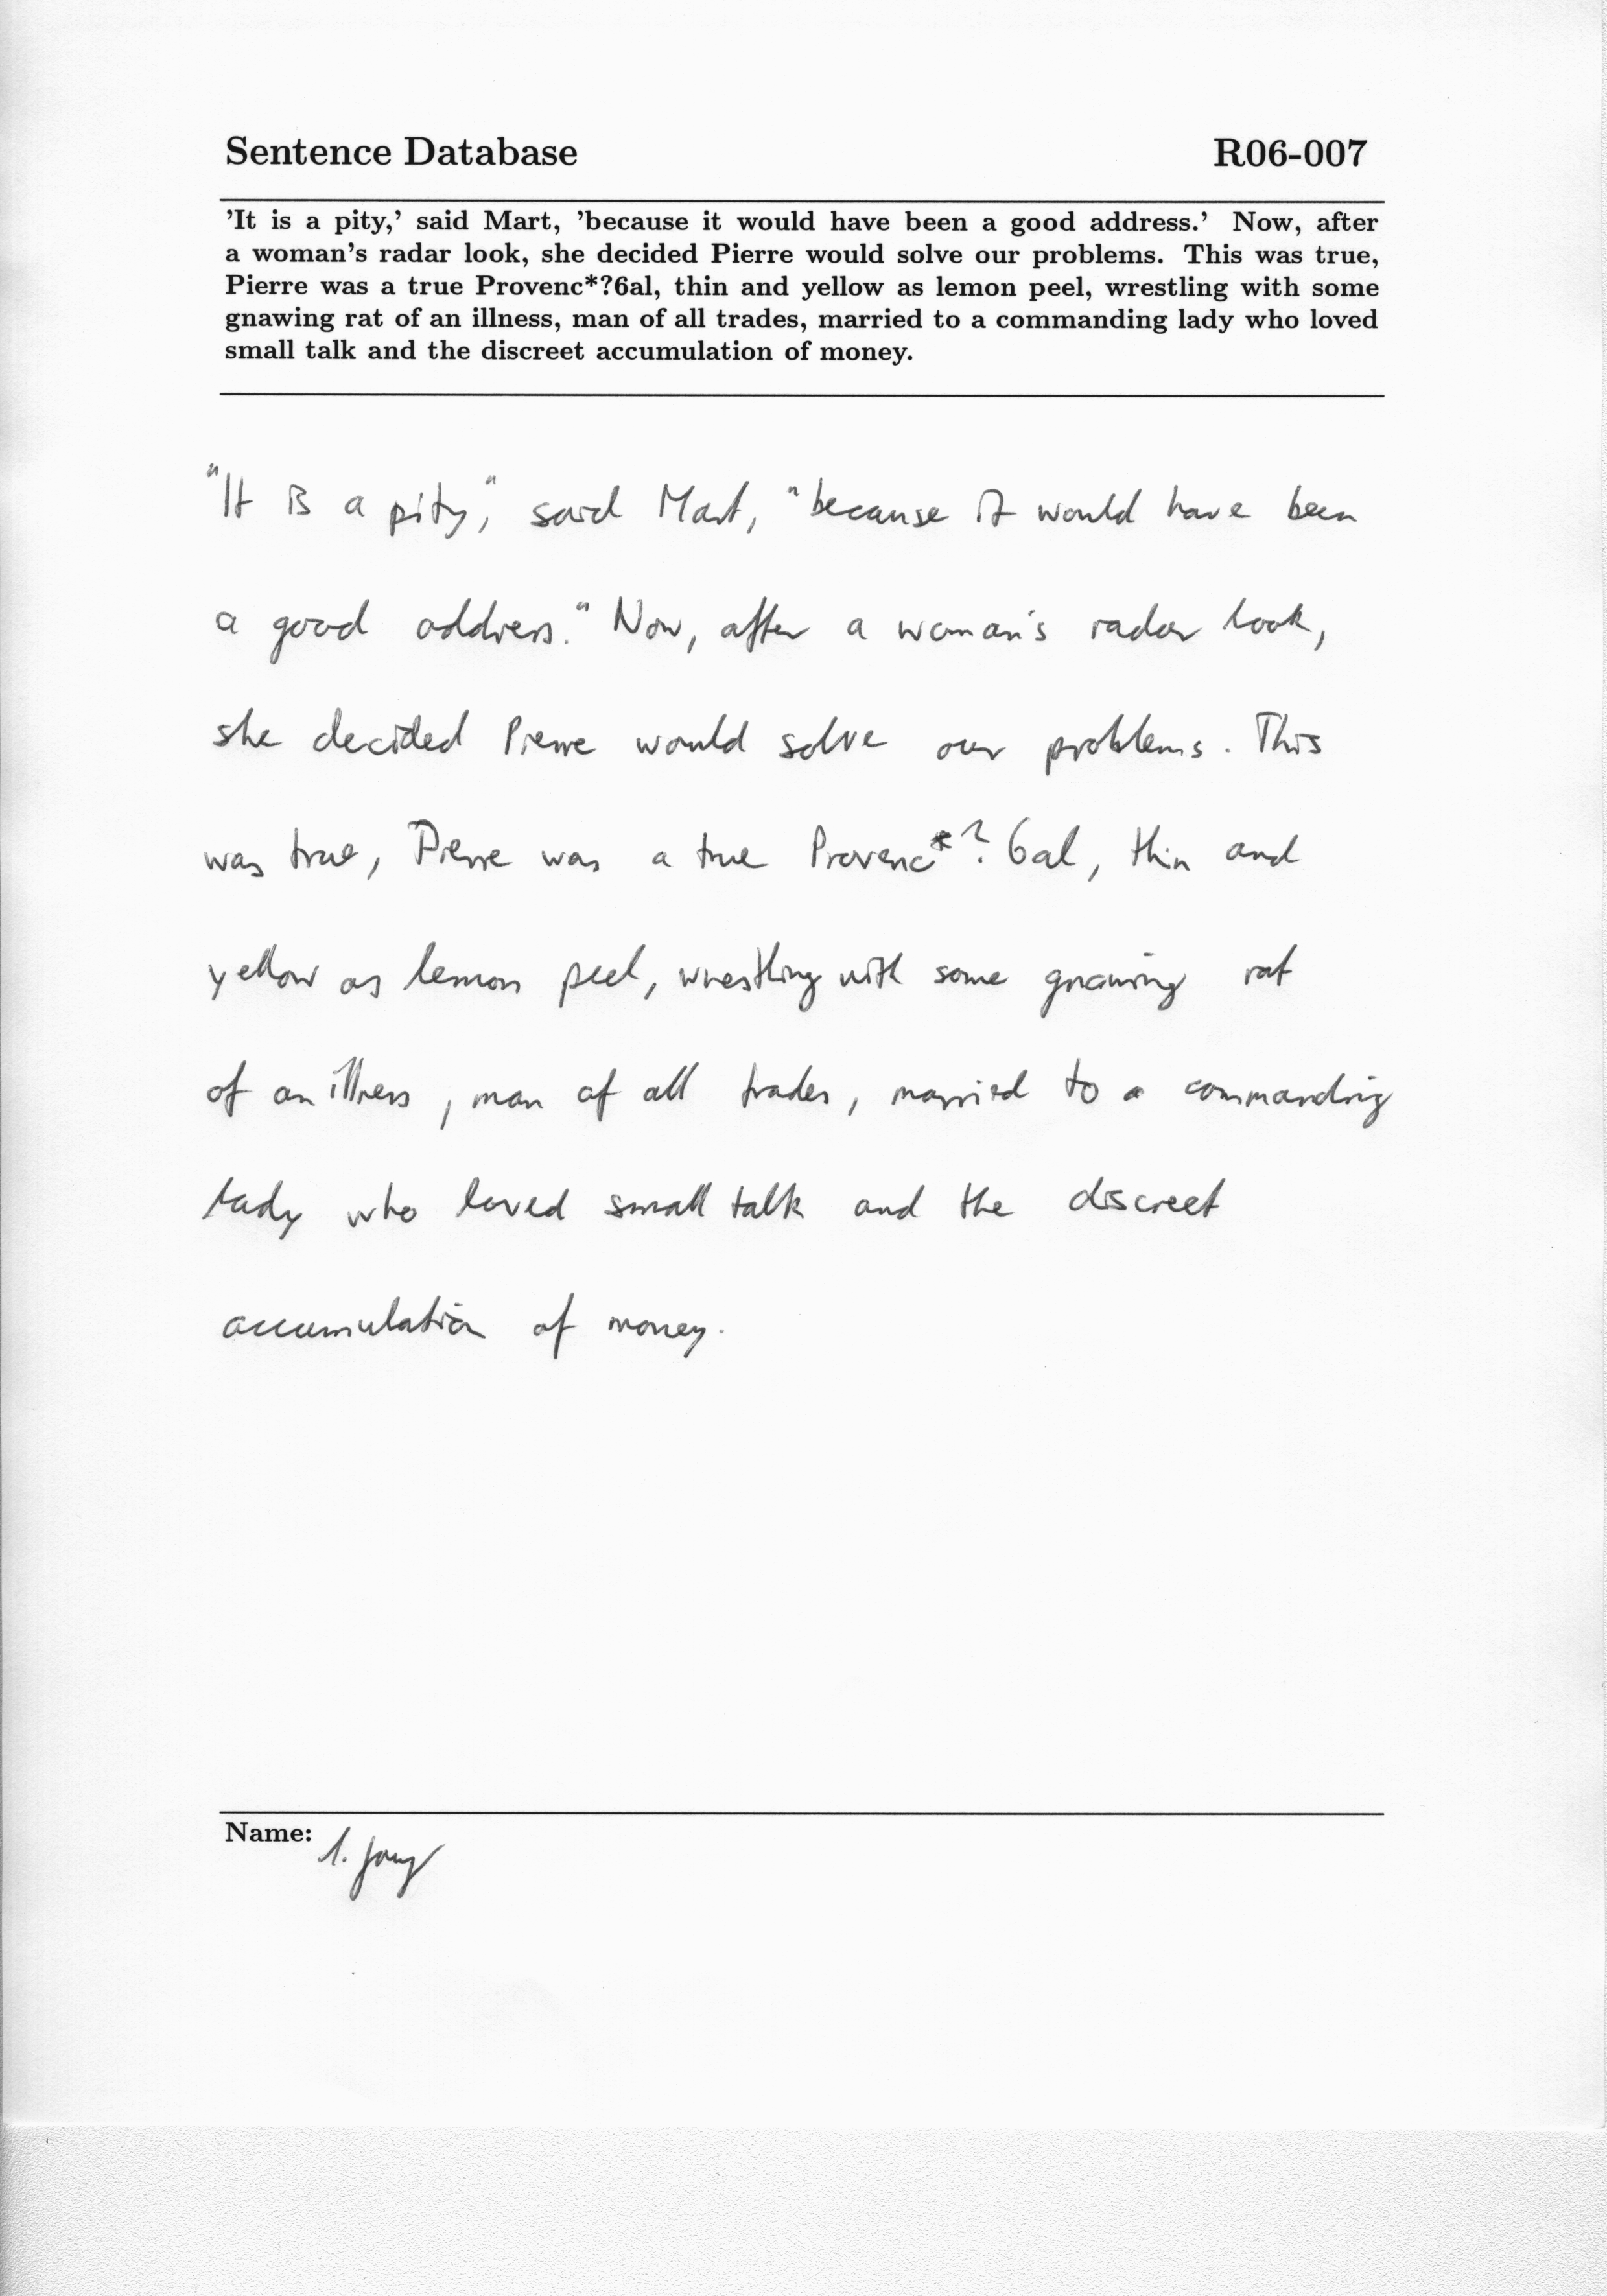 Sentence Database R06-007
'It is a pity,' said Mart, 'because it would have been a good address.' Now, after
a woman's radar look, she decided Pierre would solve our problems. This was true,
Pierre was a true Provenc*?6al, thin and yellow as lemon peel, wrestling with some
gnawing rat of an illness, man of all trades, married to a commanding lady who loved
small talk and the discreet accumulation of money.
"It is a pity," said Mart, "because it would have been
a good address." Now, after a woman's radar look,
she decided Pierre would solve our problems. This
was true, Pierre was a true Provenc*?6al, thin and
yellow as lemon peel, wrestling with some gnawing rat
of an illness, man of all trades, married to a commanding
lady who loved small talk and the discreet
accumulation of money.
Name: